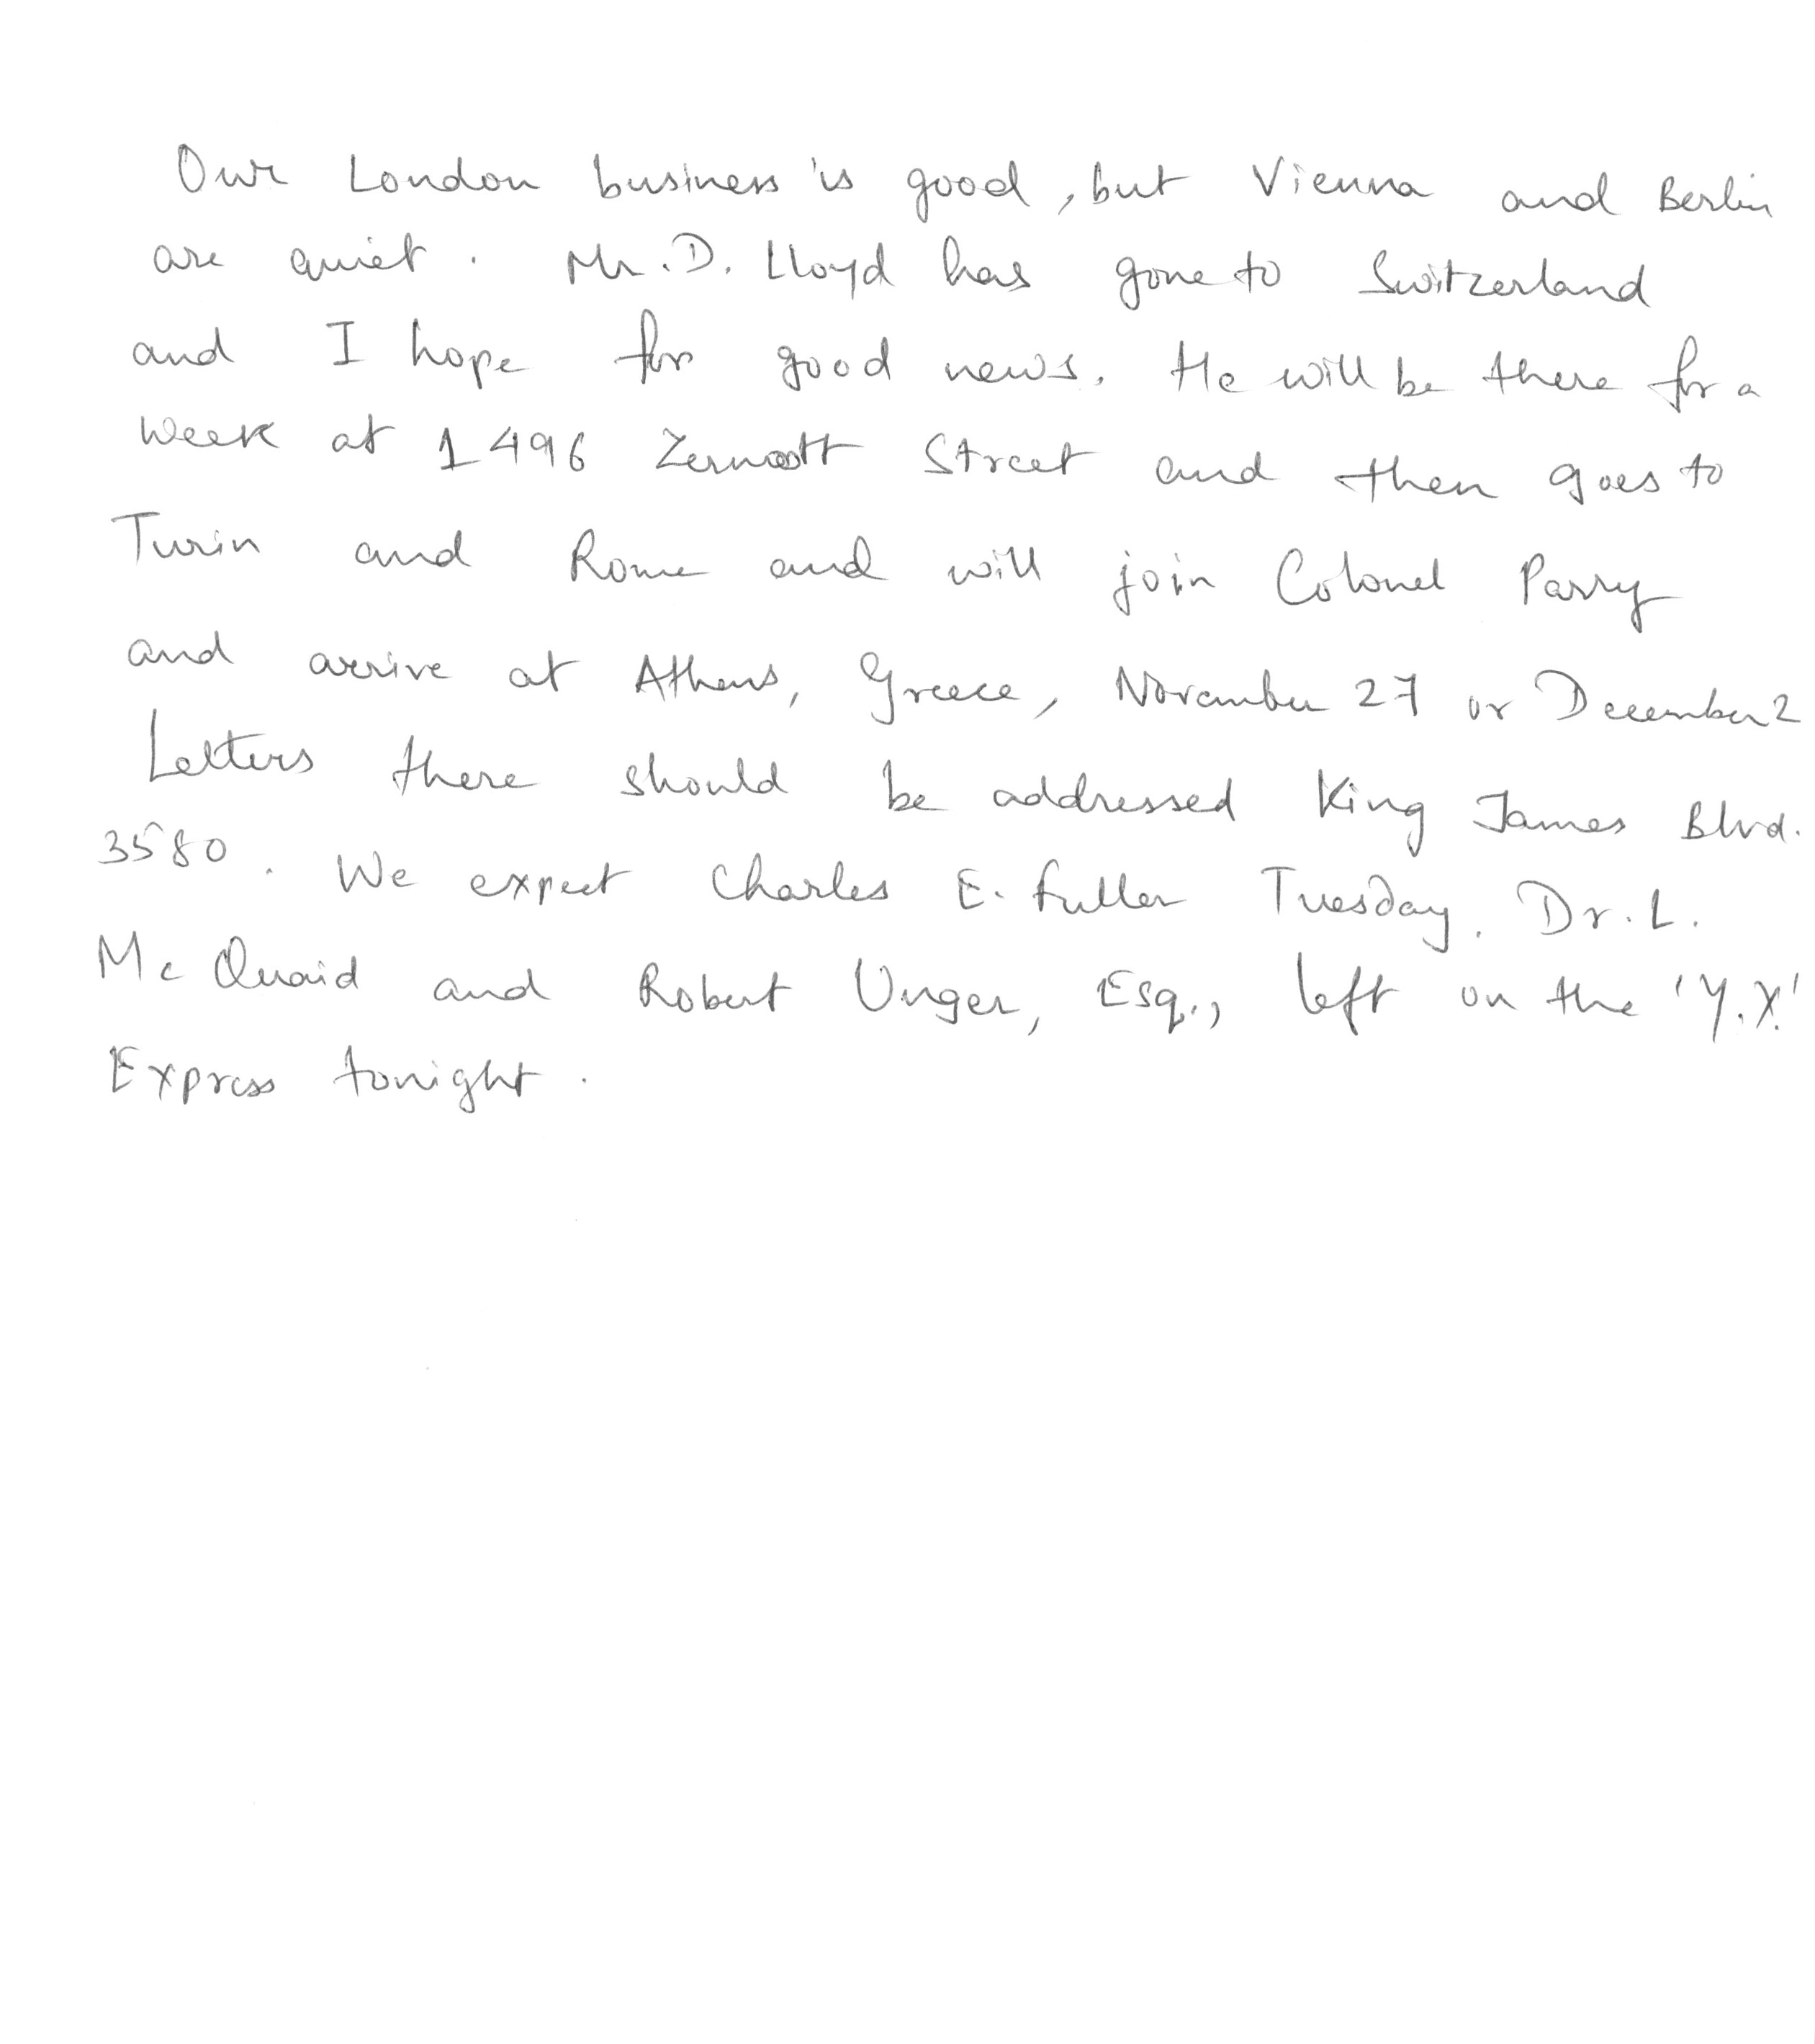 Our London business is good, but Vienna and Berlin
are quiet. Mr. D. Lloyd has gone to Switzerland
and I hope for good news. He will be there for a
week at 1496 Zermott Street and then goes to
Turin and Rome and will join Colonel Parry
and arrive at Athens, Greece, November 27 or December 2
Letters there should be addressed King James Blvd.
3580. We expect Charles E. Fuller Tuesday. Dr. L.
McQuaid and Robert Unger, Esq., left on the 'Y.X.'
Express tonight.